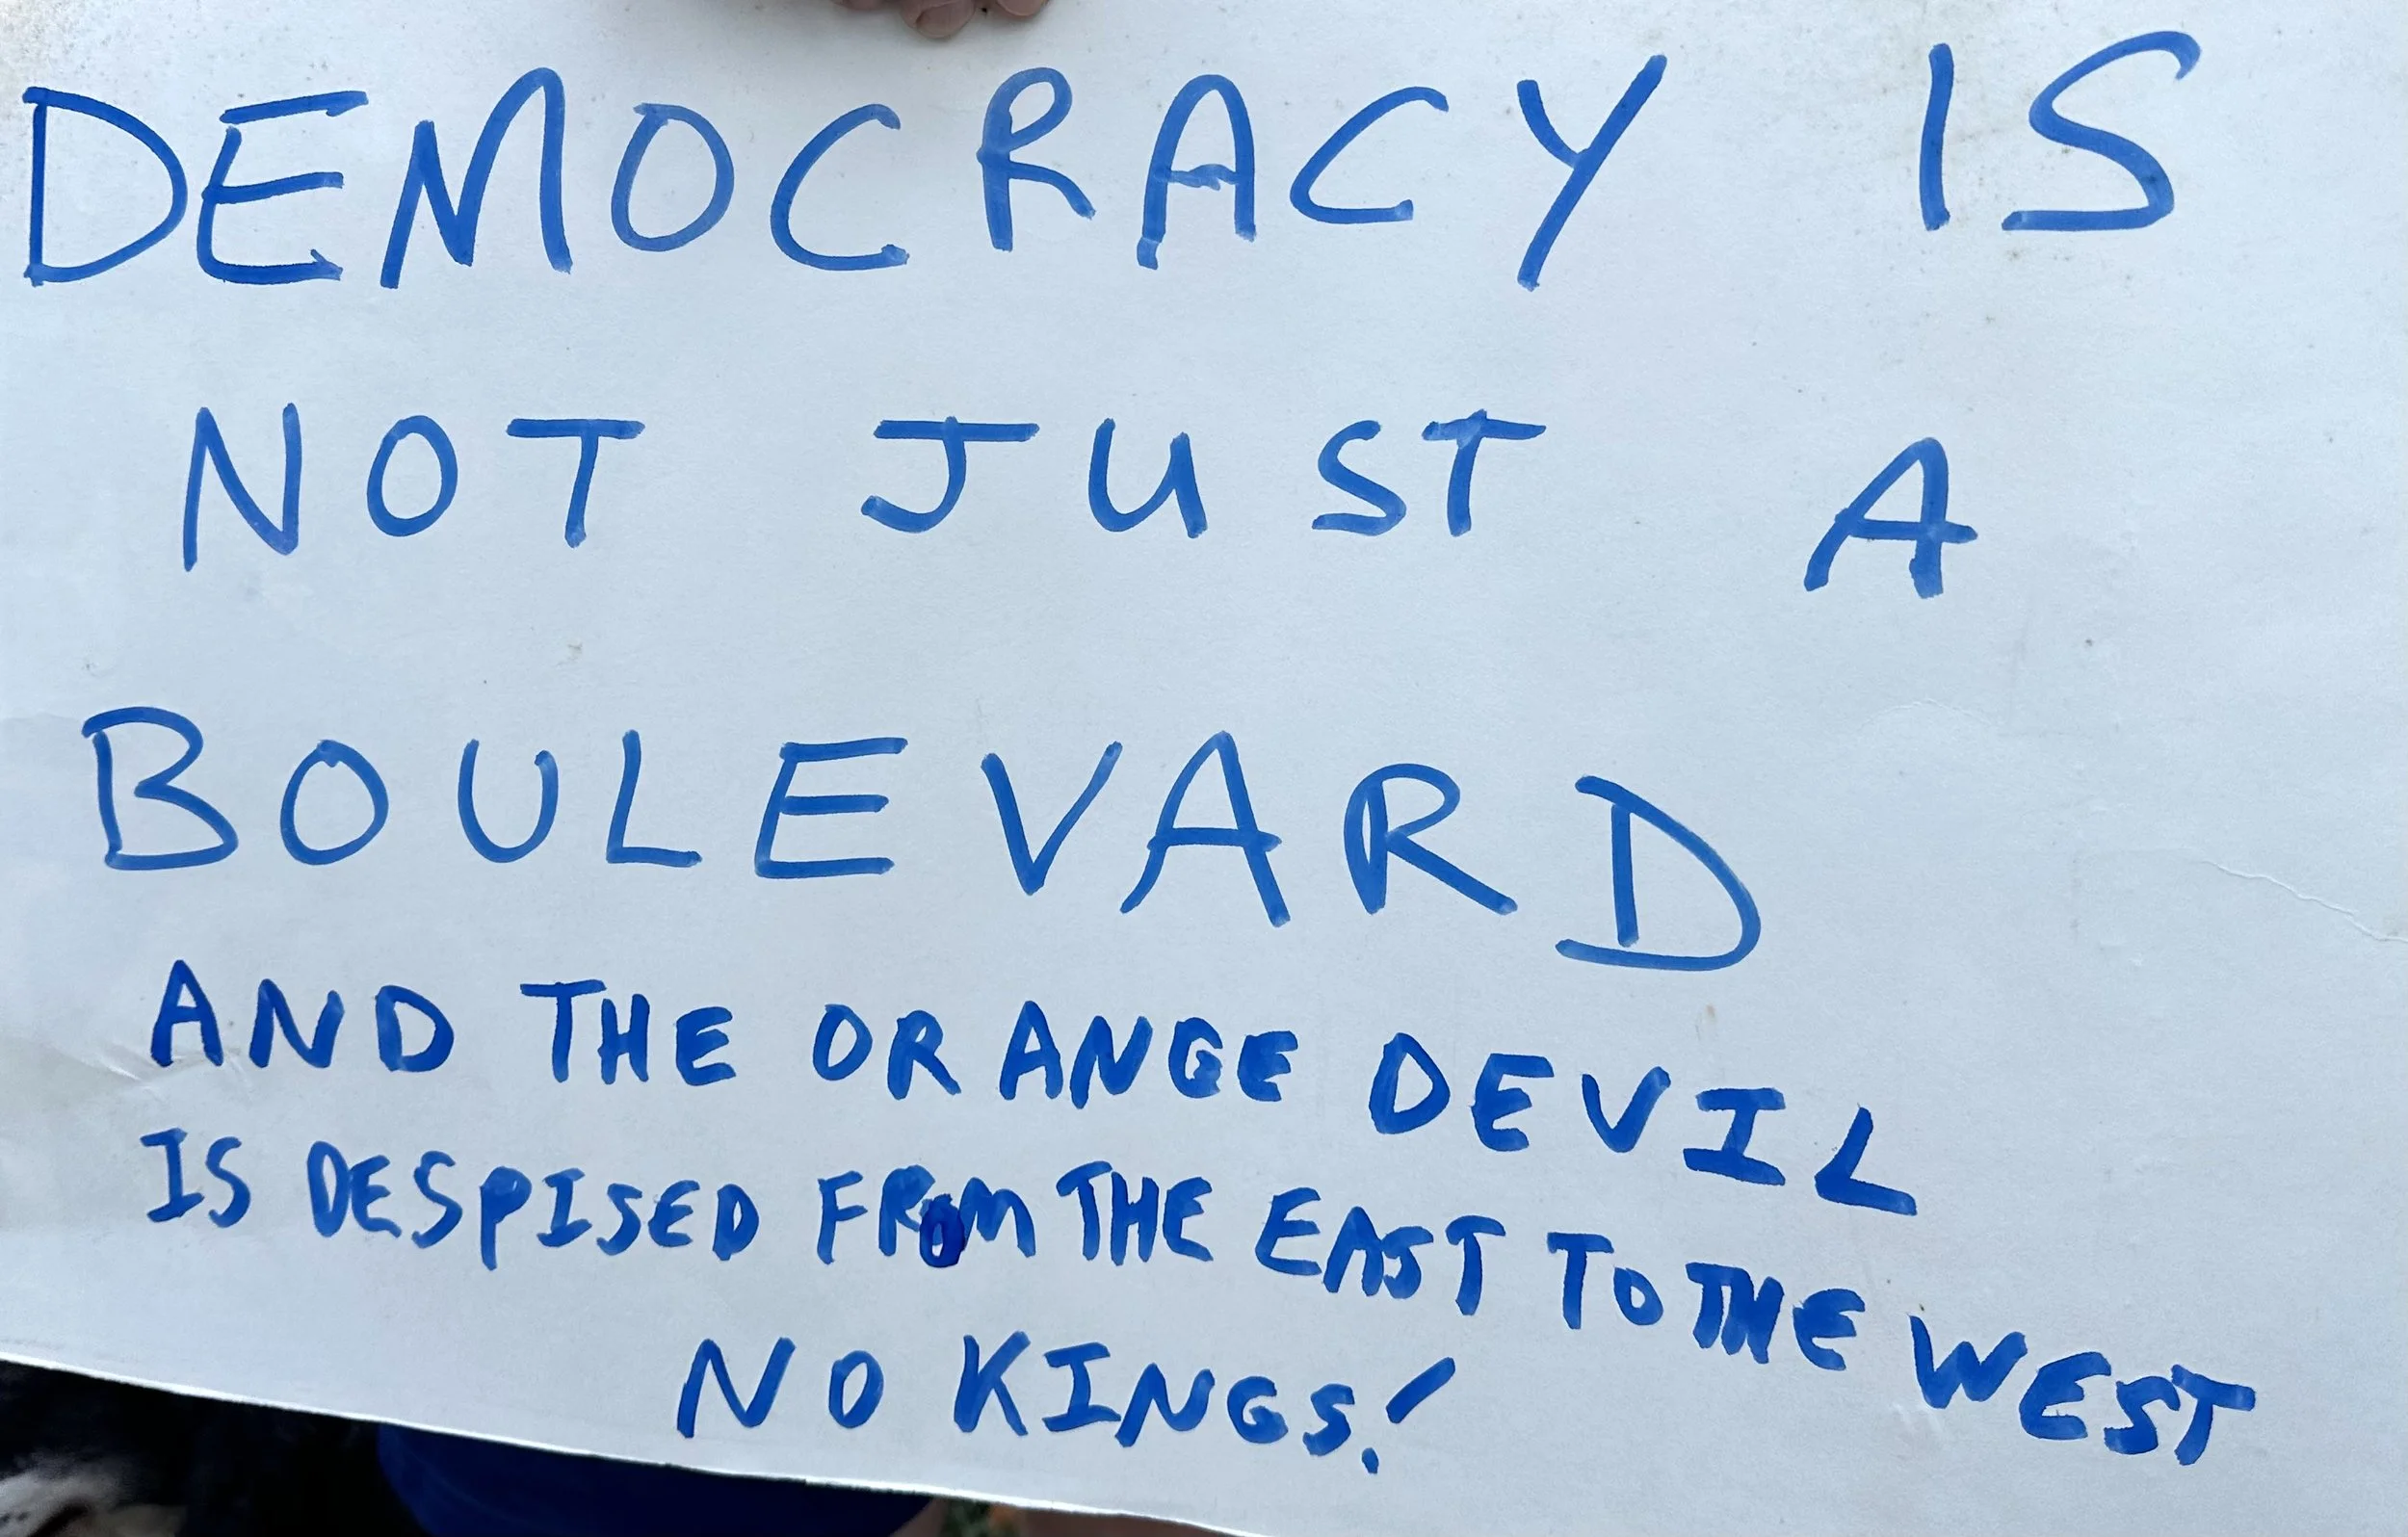 DEMOCRACY IS
NOT JUST A
BOULEVARD
AND THE ORANGE DEVIL
IS DESPISED FROM THE EAST TO THE WEST
NO KINGS!